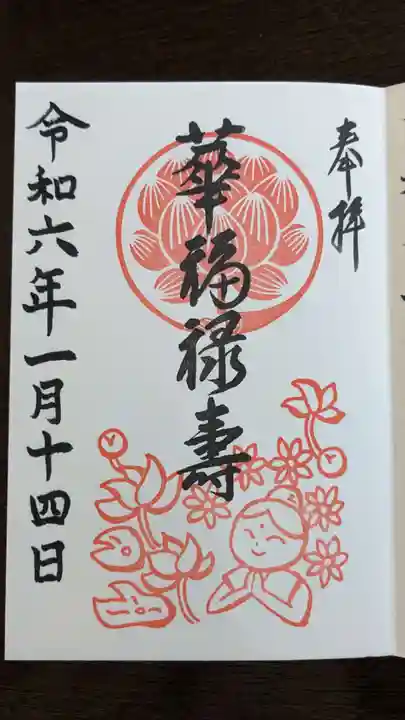 奉拝
華福禄壽
令和六年一月十四日